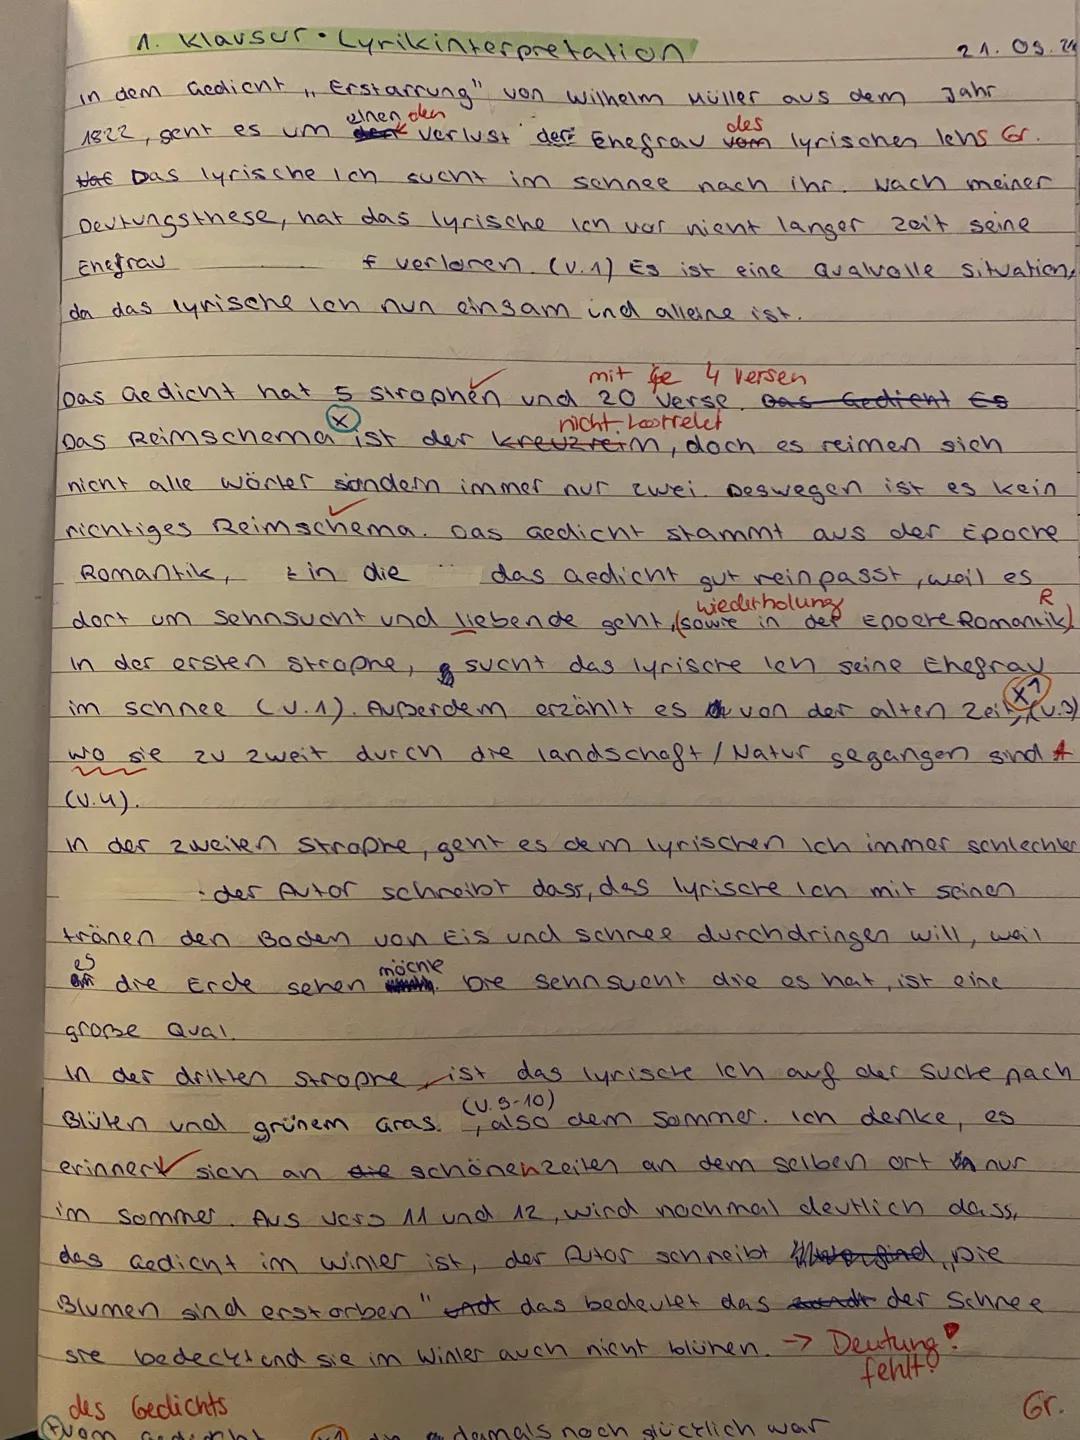 1. Klausur • Lyrikinterpretation 21.03.
In dem Gedicht „Erstarrung" von Wilhelm Müller aus dem Jahr
einen den des
1822, geht es um den Verlust der Ehefrau vom lyrischen Ichs Gr.
Das lyrische Ich sucht im Schnee nach ihr. Nach meiner
Deutungsthese, hat das lyrische Ich vor nicht langer Zeit seine
Ehefrau verloren. (V.1) Es ist eine Qualvolle Situation,
da das lyrische Ich nun einsam und alleine ist.
mit je 4 Versen
Das Gedicht hat 5 Strophen und 20 Verse. Das Gedicht Es
nicht korrekt
Das Reimschema (X) ist der Kreuzreim, doch es reimen sich
nicht alle Wörter sondern immer nur zwei. Deswegen ist es kein
richtiges Reimschema. Das Gedicht stammt aus der Epoche
Romantik, in die das Gedicht gut reinpasst, weil es
Wiederholung R
dort um Sehnsucht und liebende geht, (sowie in der Epoche Romantik)
In der ersten Strophe, sucht das lyrische Ich seine Ehefrau
x1
im Schnee (V.1). Außerdem erzählt es von der alten Zeit, (V.3)
wo sie zu zweit durch die landschaft/Natur gegangen sind
(V.4).
In der zweiten Strophe, geht es dem lyrischen Ich immer schlechter
der Autor schreibt dass, das lyrische Ich mit seinen
tränen den Boden von Eis und Schnee durchdringen will, weil
es möchte
die Erde sehen. Die Sehnsucht die es hat, ist eine
große Qual.
In der dritten Strophe ist das lyrische Ich auf der Suche nach
(V.9-10)
Blüten und grünem Gras. , also dem Sommer. Ich denke, es
erinnert sich an die schönen Zeiten an dem selben ort nur
im Sommer. Aus Vers 11 und 12, wird nochmal deutlich dass,
das Gedicht im Winter ist, der Autor schreibt „Die
Blumen sind erstorben" das bedeutet das der Schnee
sie bedeckt und sie im Winter auch nicht blühen. → Deutung fehlt!
des Gedichts Gr.
vom Gedicht x1 die damals noch glücklich war